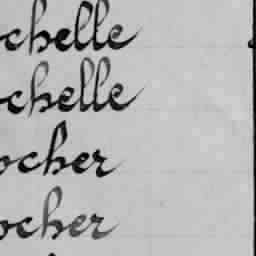 ochelle
ochelle
ocher
ocher